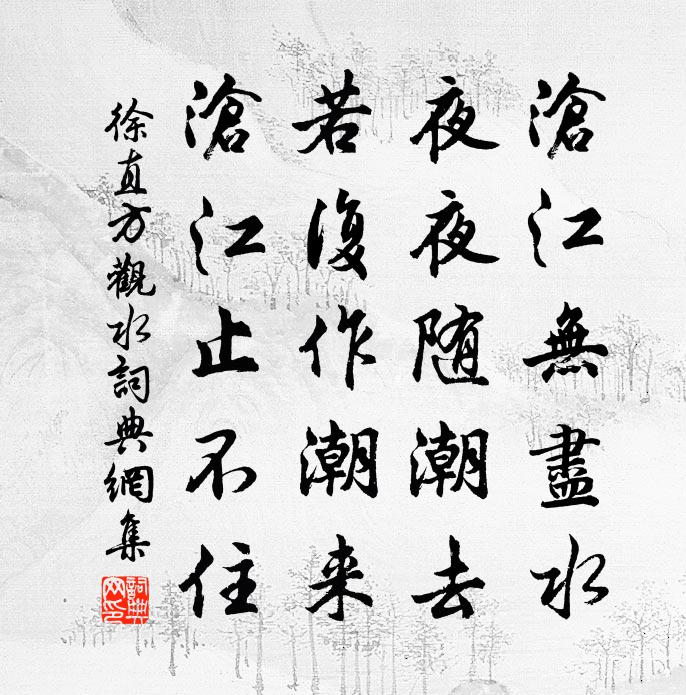 滄江無盡水
夜夜随潮去
若復作潮来
滄江止不住
徐直方觀水詞典網集
詞典網印